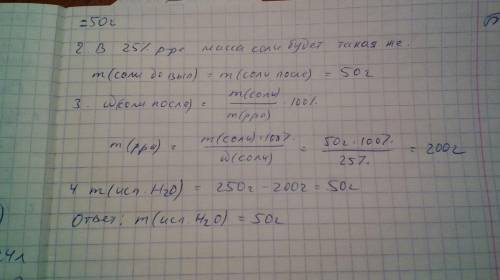 =50г
2. В 25% р-ре масса соли будет такая же.
m(соли до вып) = m(соли после) = 50г
3. ω(соли после) = m(соли) / m(р-ра) · 100%
m(р-ра) = m(соли)·100% / ω(соли) = 50г·100% / 25% = 200г
4 m(исп. H2O) = 250г - 200г = 50г
Ответ: m(исп. H2O) = 50г